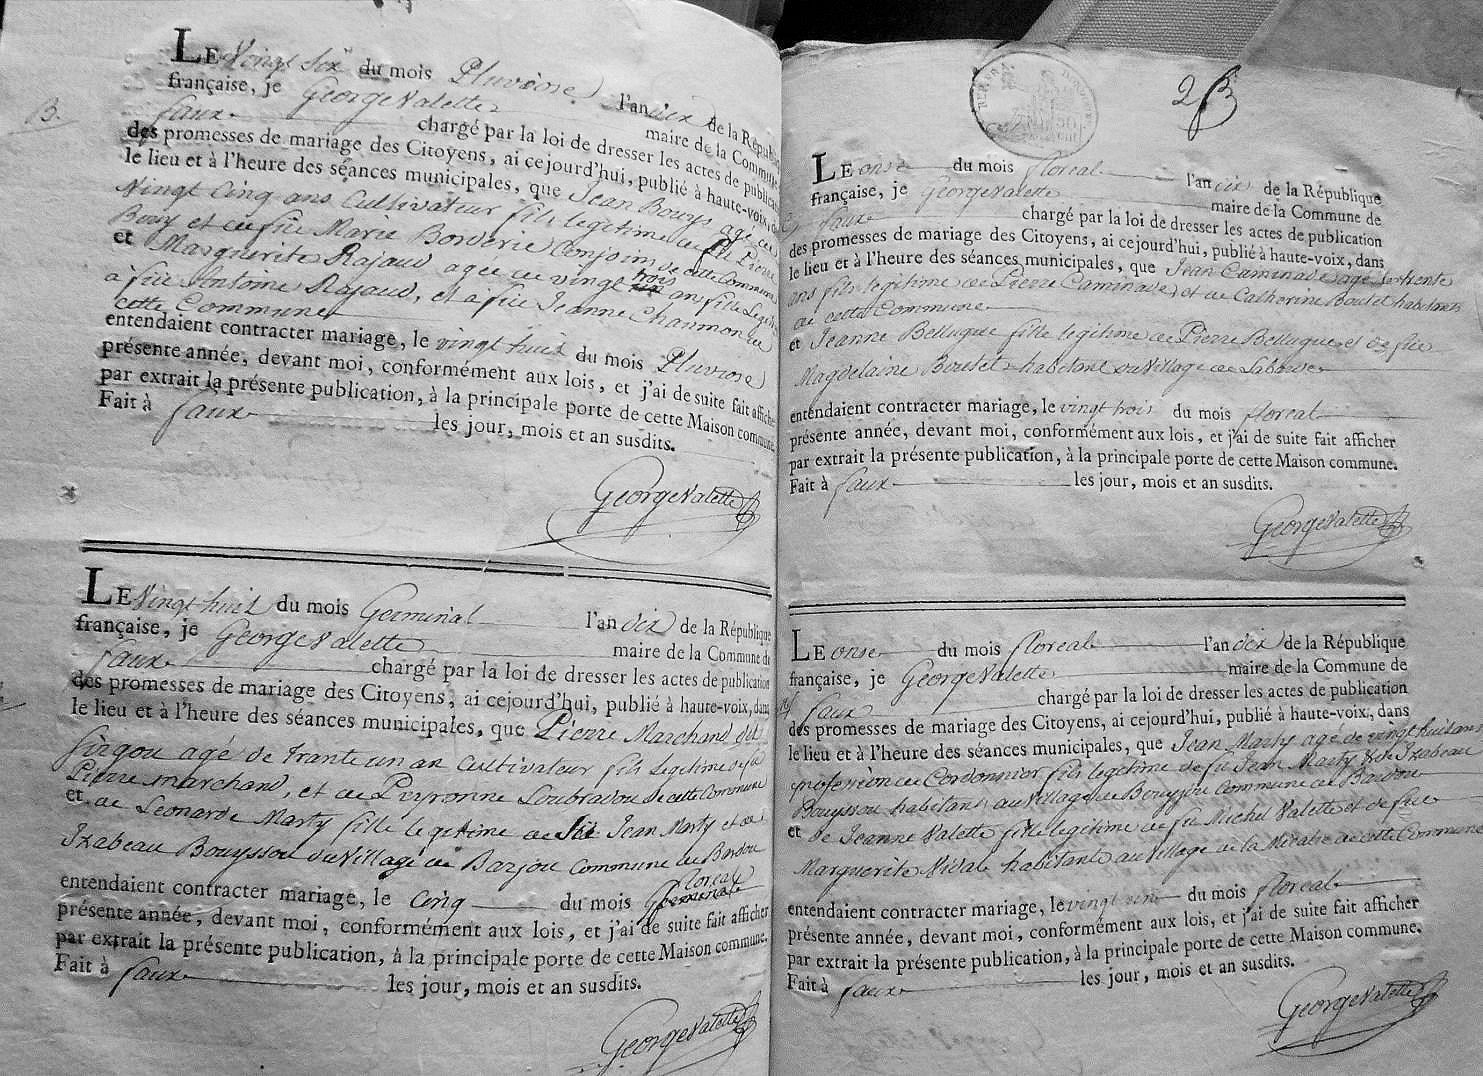 B.
LE Vingt six du mois Pluviose l'an dix de la République
française, je George Valette maire de la Commune
faux chargé par la loi de dresser les actes de publication
des promesses de mariage des Citoyens, ai cejourd'hui, publié à haute-voix,
le lieu et à l'heure des séances municipales, que Jean Bouys agé de
Vingt Cinq ans Cultivateur fils legitime de Pierre
Bouy et de feue Marie Borderie Conjoins de cette Commune
et Marguerite Rajaud agée de vingt trois ans fille Legit
à feu Antoine Rajaud, et a feue Jeanne Chaumon de
cette Commune
entendaient contracter mariage, le vingt huit du mois Pluviose
présente année, devant moi, conformément aux lois, et j'ai de suite fait afficher
par extrait la présente publication, à la principale porte de cette Maison commune
Fait à faux les jour, mois et an susdits.
George Valette
LE Vingt huit du mois Germinal l'an dix de la République
française, je George Valette maire de la Commune de
faux chargé par la loi de dresser les actes de publication
des promesses de mariage des Citoyens, ai cejourd'hui, publié à haute-voix, dans
le lieu et à l'heure des séances municipales, que Pierre Marchand dit
firgou agé de trante un an Cultivateur fils legitime de fu
Pierre marchand, et de Peyronne Loubradou de cette Commune
et de Leonarde Marty fille legitime de Jean Marty et de
Izabeau Bouyssou du Village de Barjou Commune de Bardou
entendaient contracter mariage, le Cinq du mois floreal
présente année, devant moi, conformément aux lois, et j'ai de suite fait afficher
par extrait la présente publication, à la principale porte de cette Maison commune.
Fait à faux les jour, mois et an susdits.
George Valette
2 B
LE onse du mois floreal l'an dix de la République
française, je George Valette maire de la Commune de
faux chargé par la loi de dresser les actes de publication
des promesses de mariage des Citoyens, ai cejourd'hui, publié à haute-voix, dans
le lieu et à l'heure des séances municipales, que Jean Caminade agé de trente
ans fils legitime de Pierre Caminade, et de Catherine Boulet habitants
de cette Commune
et Jeanne Bellugue fille legitime de Pierre Bellugue et de feue
Magdelaine Bouset habitant du Village de Laborde
entendaient contracter mariage, le vingt trois du mois floreal
présente année, devant moi, conformément aux lois, et j'ai de suite fait afficher
par extrait la présente publication, à la principale porte de cette Maison commune.
Fait à faux les jour, mois et an susdits.
George Valette
LE onse du mois floreal l'an dix de la République
française, je George Valette maire de la Commune de
faux chargé par la loi de dresser les actes de publication
des promesses de mariage des Citoyens, ai cejourd'hui, publié à haute-voix, dans
le lieu et à l'heure des séances municipales, que Jean Marty age de vingt huit ans
profession de Cordonnier fils legitime de fu Jean Marty & de Izabeau
Bouyssou habitans au Village de Bouyssou Commune de Bardou
et de Jeanne Valette fille legitime de fu Michel Valette et de feue
Marguerite Vidal habitante au Village de la Micalie de cette Commune
entendaient contracter mariage, le vingt un du mois floreal
présente année, devant moi, conformément aux lois, et j'ai de suite fait afficher
par extrait la présente publication, à la principale porte de cette Maison commune.
Fait à faux les jour, mois et an susdits.
George Valette